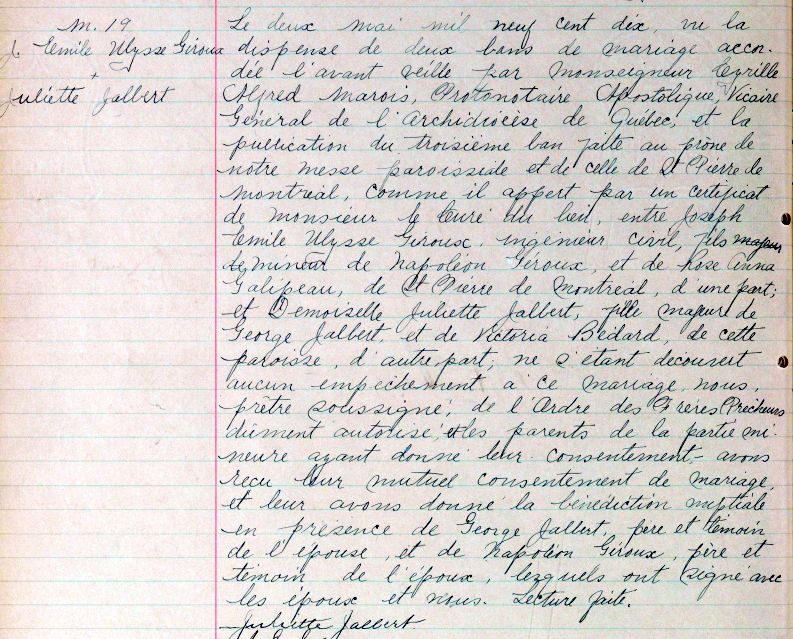 M. 19
J. Emile Ulysse Giroux
+
Juliette Jalbert
Le deux mai mil neuf cent dix, vu la
dispense de deux bans de mariage accor-
dée l'avant veille par Monseigneur Cyrille
Alfred Marois, Protonotaire Apostolique, Vicaire
Général de l'Archidiocèse de Québec, et la
publication du troisième ban faite au prône de
notre messe paroissiale et de celle de St Pierre de
Montréal, comme il appert par un certificat
de Monsieur le Curé du lieu, entre Joseph
Emile Ulysse Giroux, ingénieur civil, fils majeur
mineur de Napoléon Giroux, et de Rose Anna
Galipeau, de St Pierre de Montréal, d'une part;
et Demoiselle Juliette Jalbert, fille majeure de
George Jalbert, et de Victoria Bédard, de cette
paroisse, d'autre part, ne s'étant découvert
aucun empêchement à ce mariage, nous,
prêtre soussigné, de l'Ordre des Frères Prêcheurs
dûment autorisé, et les parents de la partie mi-
neure ayant donné leur consentement, avons
reçu leur mutuel consentement de mariage,
et leur avons donné la bénédiction nuptiale
en présence de George Jalbert, père et témoin
de l'épouse, et de Napoléon Giroux, père et
témoin de l'époux, lesquels ont signé avec
les époux et nous. Lecture faite.
Juliette Jalbert